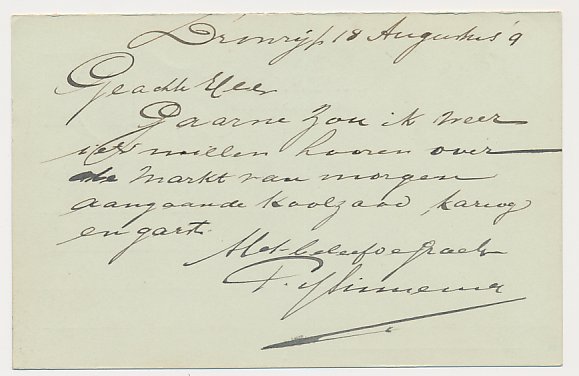 Dronrijp 18 Augustus 9
Geachte Heer
Gaarne zou ik weer
iets willen hooren over
de markt van morgen
aangaande koolzaad, karwy
en garst.
Met beleefde groet